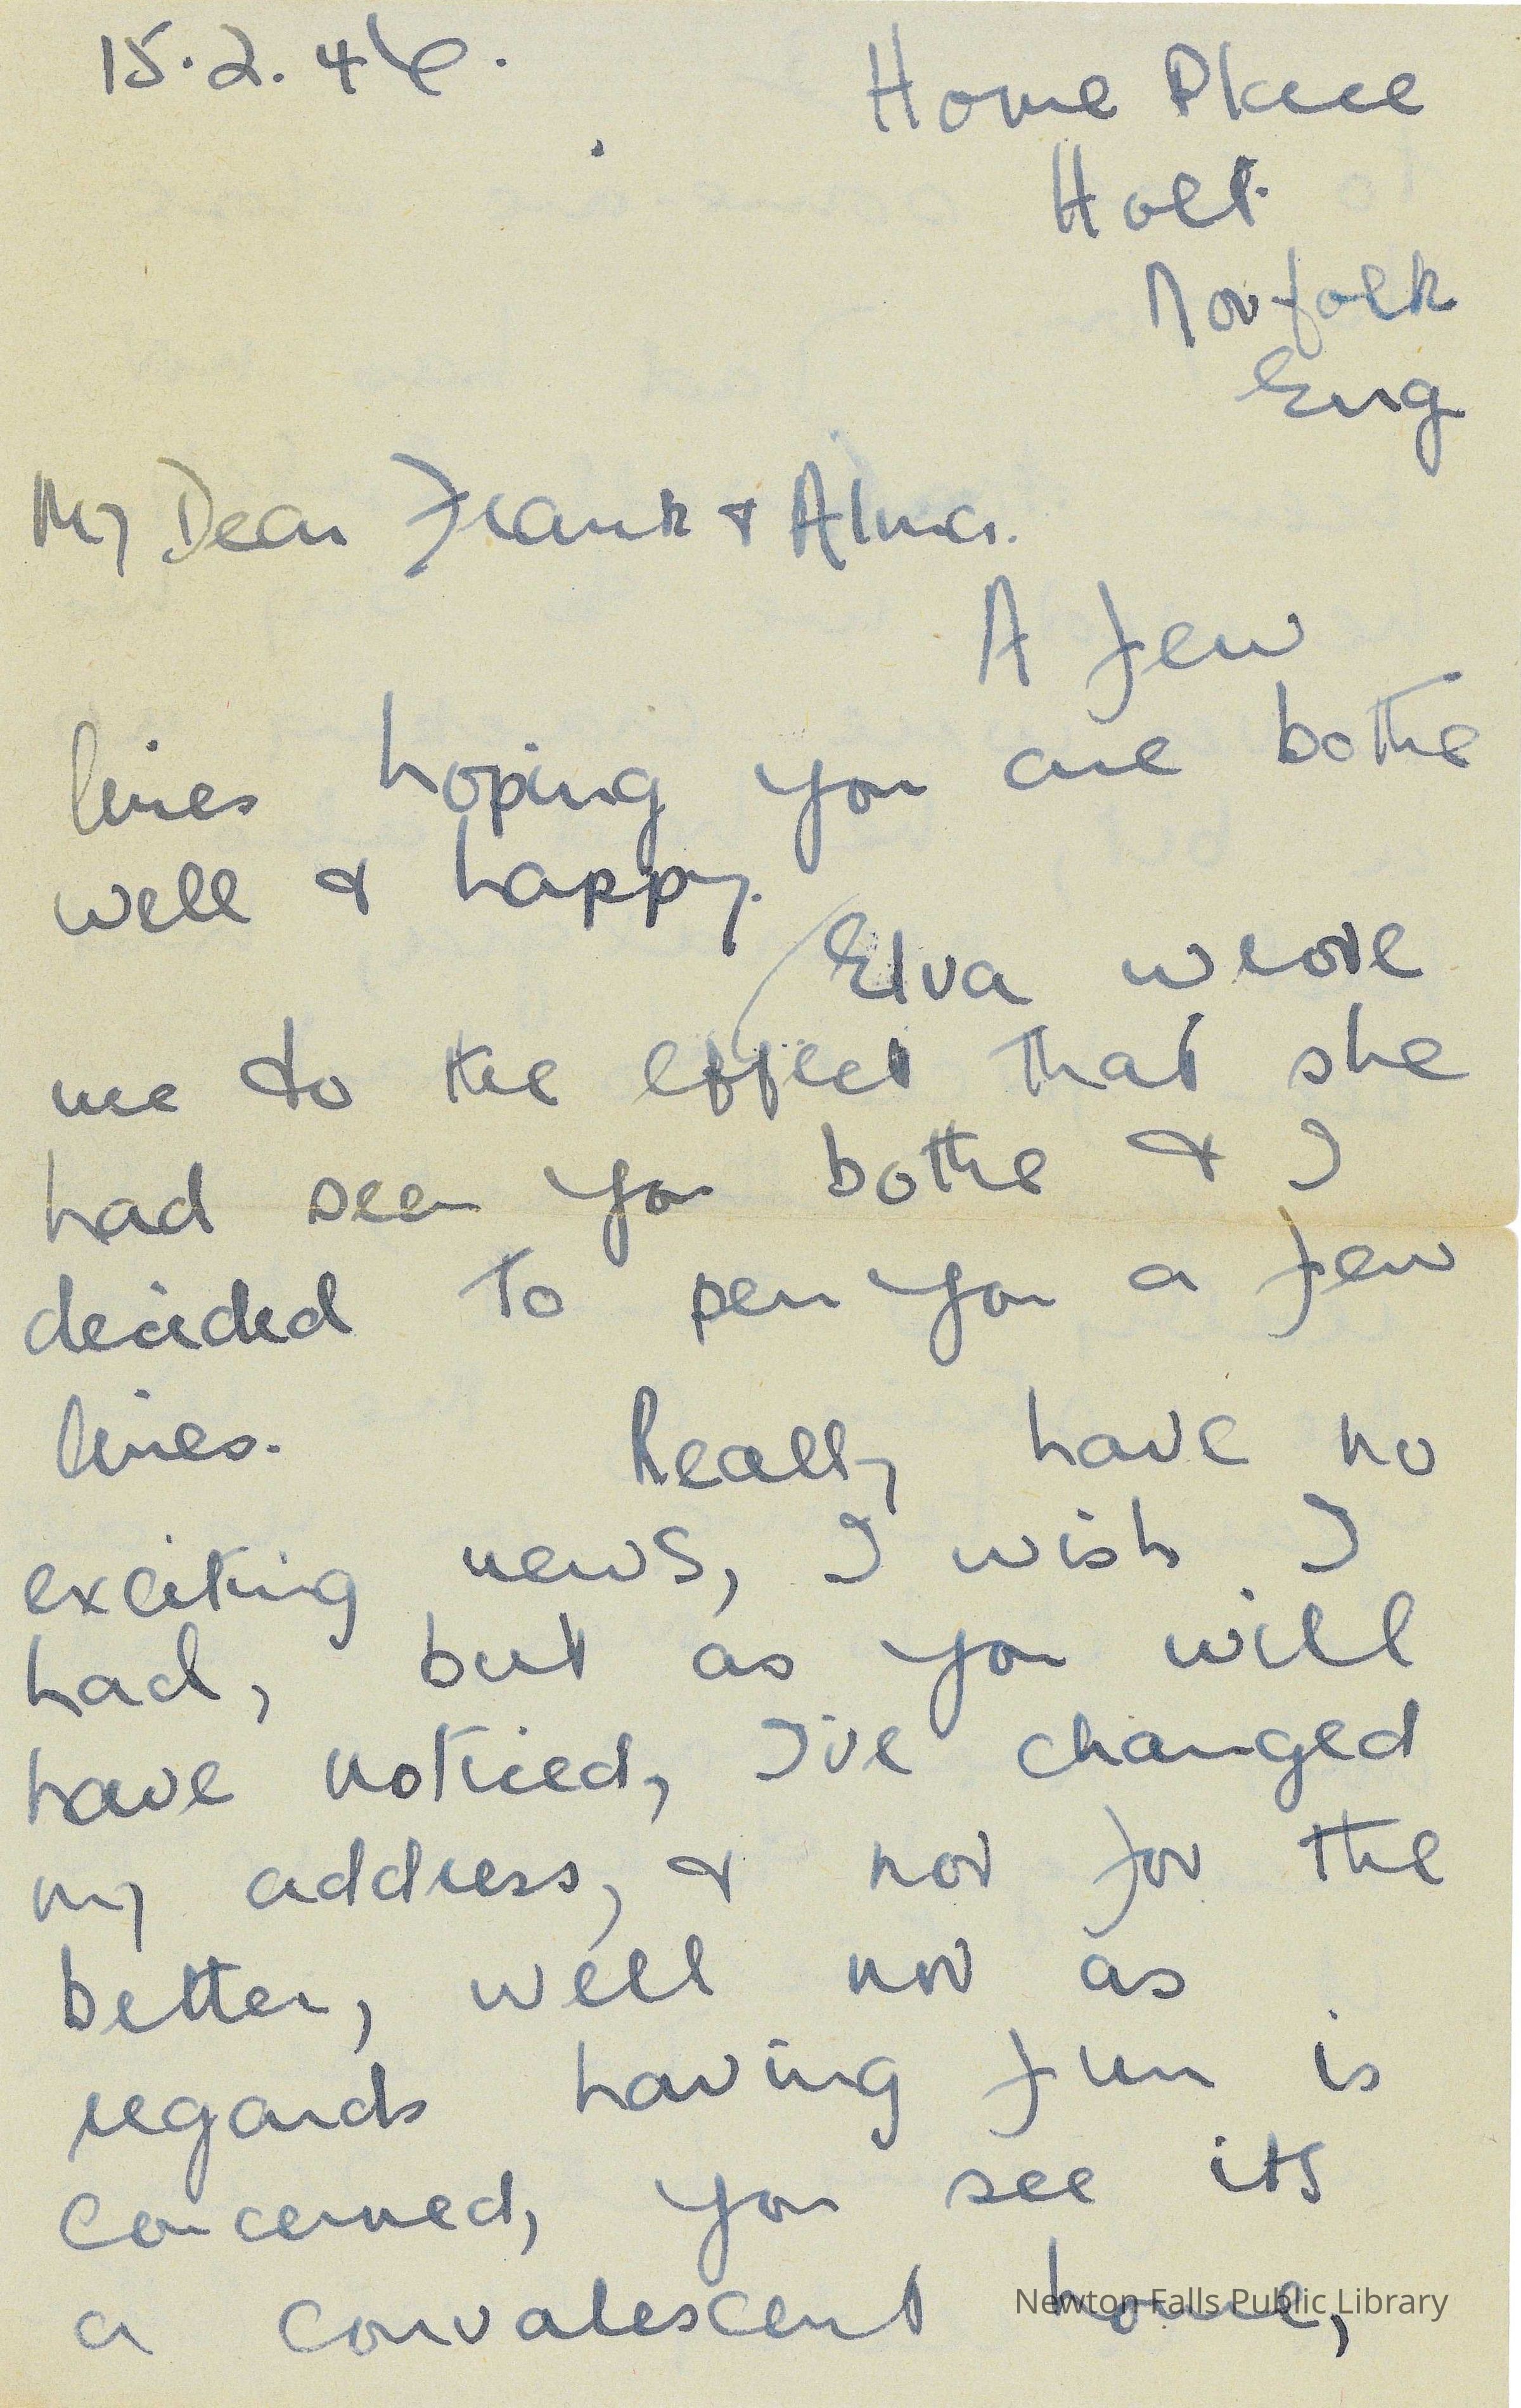 15.2.46.
Home Place
Holt.
Norfolk
Eng
My Dear Frank & Alma.
A few
lines hoping you are bothe
well & happy.
Elva wrote
me to the effect that she
had seen you bothe & I
decided to pen you a few
lines. Really have no
exciting news, I wish I
had, but as you will
have noticed, I've changed
my address, & not for the
better, well not as
regards having fun is
concerned, you see its
a convalescent home,
Newton Falls Public Library